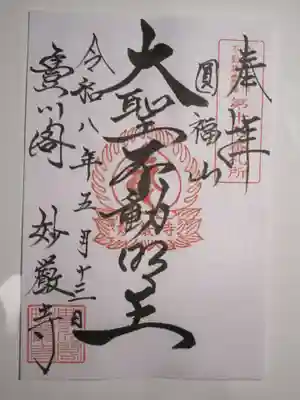 奉拝
圓福山
大聖不動明王
令和八年五月十三日
豊川閣 妙厳寺